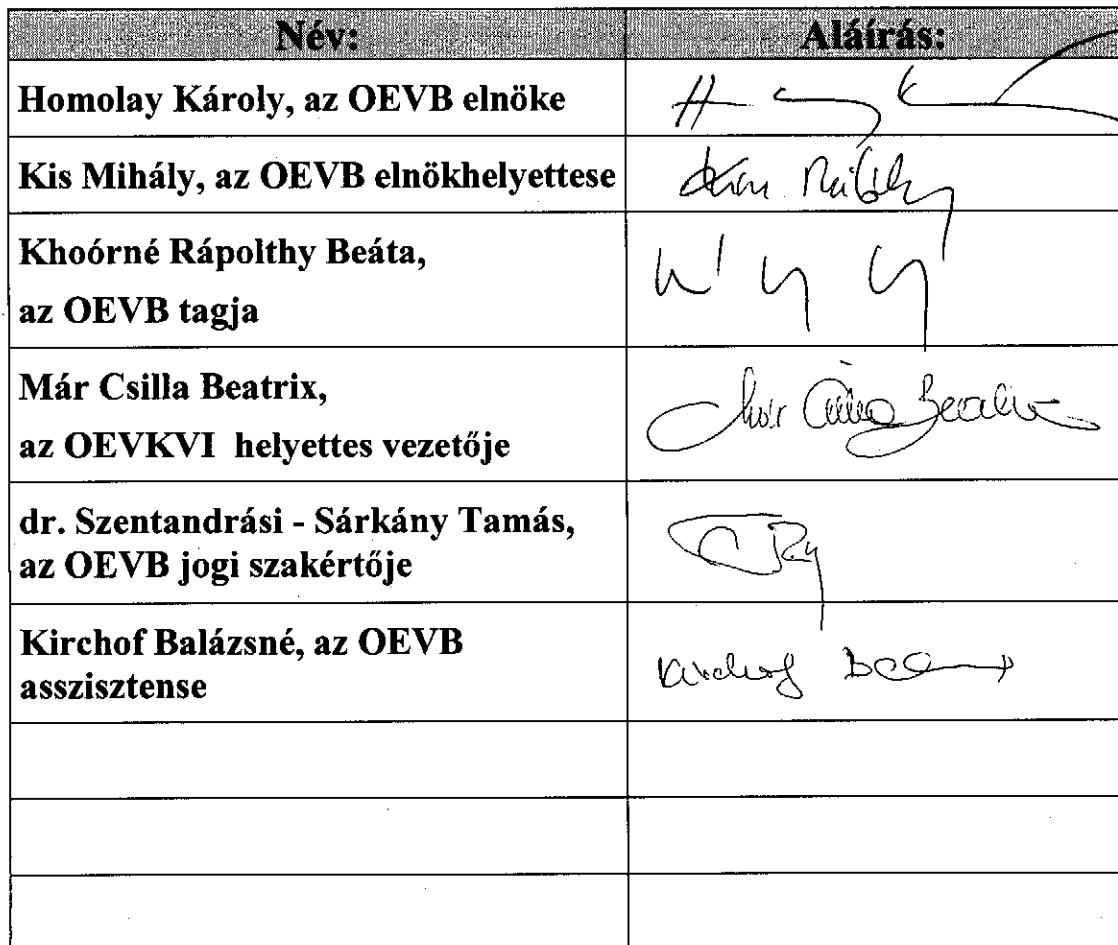 Név: Aláírás:
Homolay Károly, az OEVB elnöke
Kis Mihály, az OEVB elnökhelyettese
Khoórné Rápolthy Beáta,
az OEVB tagja
Már Csilla Beatrix,
az OEVKVI helyettes vezetője
dr. Szentandrási - Sárkány Tamás,
az OEVB jogi szakértője
Kirchof Balázsné, az OEVB
asszisztense